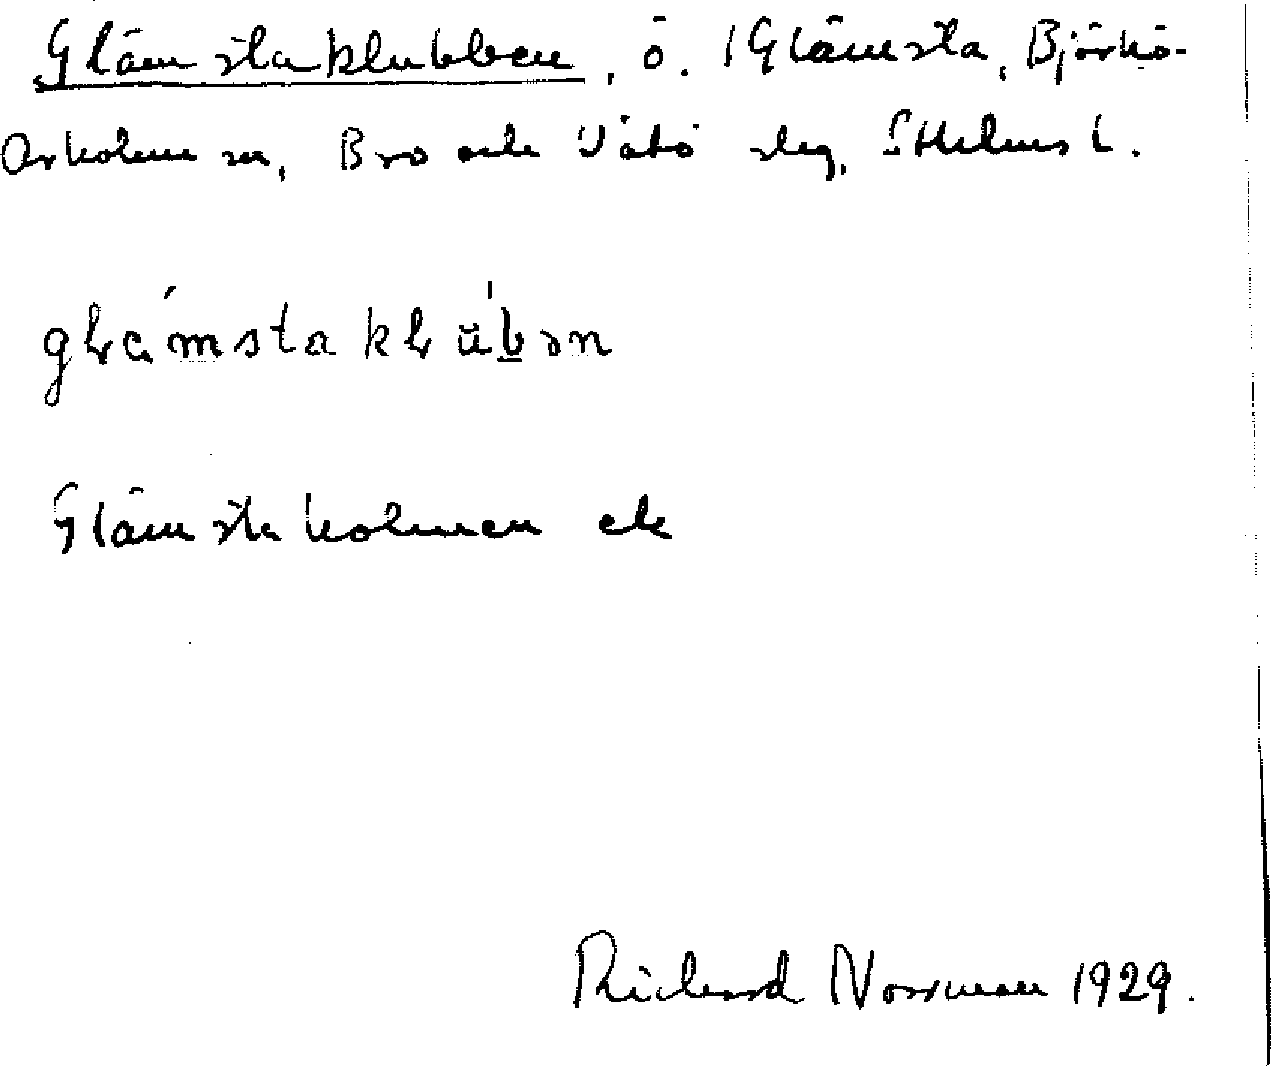 Glämstaklubben, ö. i Glämsta, Björkö-
Arholma sn, Bro och Vätö slg, Sthlms l.
glä́mstaklŭ́bən
Glämstaholmen ek
Richard Norrman 1929.